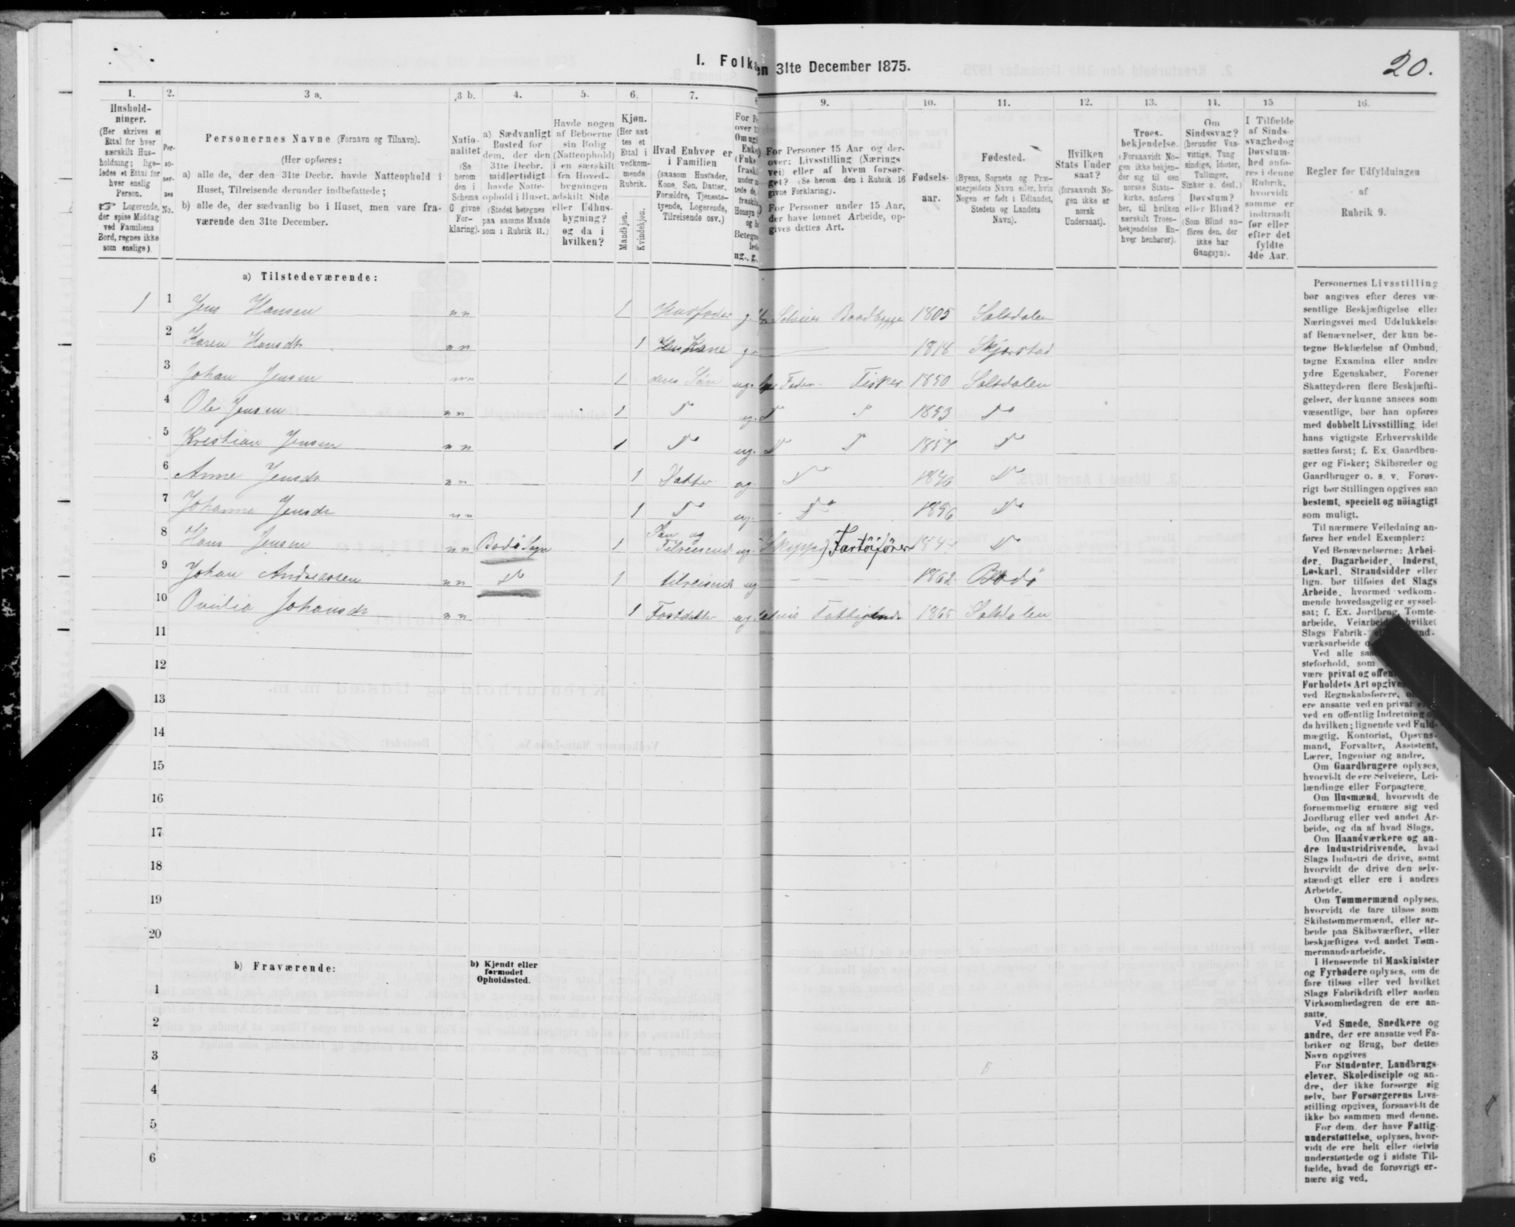 I. Folk en 31te December 1875.
20.
1.
2.
3 a.
3 b.
4.
5.
6.
7.
9.
10.
11.
12.
13.
14.
15
16.
Hushold-
ninger.
(Her skrives et
Ettal for hver
særskilt Hus-
holdning; lige-
ledes et Ettal for
hver enslig
Person.
Logerende,
der spise Middag
ved Familiens
Bord, regnes ikke
som enslige).
Per-
so-
ner-
nes
No.
Personernes Navne (Fornavn og Tilnavn).
(Her opføres:
a) alle de, der den 31te Decbr. havde Natteophold i
Huset, Tilreisende derunder indbefattede;
b) alle de, der sædvanlig bo i Huset, men vare fra-
værende den 31te December.
Natio-
nalitet
(Se
herom
den i
Schema
G givne
For-
klaring).
a) Sædvanligt
Bosted for
dem, der den
31te Decbr.
midlertidigt
havde Natte-
ophold i Huset.
(Stedet betegnes
paa samme Maade
som i Rubrik 11.)
Havde nogen
af Beboerne
sin Bolig
(Natteophold)
i en særskilt
fra Hoved-
bygningen
adskilt Side
eller Udhus-
bygning?
og da i
hvilken?
Kjøn.
(Her sæt-
tes et
Ettal i
vedkom-
mende
Rubrik.
Mandkjøn.
Kvindekjøn.
Hvad Enhver er
i Familien
(saasom Husfader,
Kone, Søn, Datter,
Forældre, Tjeneste-
tyende, Logerende,
Tilreisende osv.)
For Personer 15 Aar og der-
over: Livsstilling (Nærings
vei) eller af hvem forsør-
get? (Se herom den i Rubrik 16
givne Forklaring).
For Personer under 15 Aar,
der have lønnet Arbeide, op-
gives dettes Art.
Fødsels-
aar.
Fødested.
(Byens, Sognets og Præ-
stegjeldets Navn eller, hvis
Nogen er født i Udlandet,
Stedets og Landets
Navn).
Hvilken
Stats Under
saat?
(forsaavidt No-
gen ikke er
norsk
Undersaat).
Troes-
bekjendelse.
(Forsaavidt No-
gen ikke bekjen-
der sig til den
norske Stats-
kirke, anføres
her, til hvilken
særskilt Troes-
bekjendelse En-
hver henhører).
Om
Sindssvag?
(herunder Van-
vittige, Tung
sindige, Idioter,
Tullinger,
Sinker o. desl.)
Døvstum?
eller Blind?
(Som Blind an-
føres den, der
ikke har
Gangsyn).
I Tilfælde
af Sinds-
svaghedog
Døvstum-
hed anfø-
res i denne
Rubrik,
hvorvidt
samme er
indtraadt
før eller
efter det
fyldte
4de Aar.
Regler for Udfyldningen
af
Rubrik 9.
a) Tilstedeværende:
1 1 Jens Hansen n n 1 Husfader g. Selveier Baadbygger 1805 Saltdalen
2 Karen Hansdtr n n 1 Hans Kone g. 1818 Skjerstad
3 Johan Jensen n n 1 deres Søn ug. Fader. Fisker 1850 Saltdalen
4 Ole Jensen n n 1 Do ug. Do 1853 Do
5 Kristian Jensen n n 1 Do ug. Do 1857 Do
6 Anne Jensdr n n 1 Datter ug Do 1846 Do
7 Johanna Jensdr n n 1 Do ug. Do 1856 Do
8 Hans Jensen n n Bodø Sogn 1 Søn og Tilreisend ug. Skipper Fartøifører Do
9 Johan Andreassen n n Do 1 tilreisende ug 1862 Bodø
10 Ovidia Johansdr n n 1 Fostdatter ug. delvis Fattiglem 1865 Saltdalen
11
12
13
14
15
16
17
18
19
20
b) Fraværende:
b) Kjendt eller
formodet
Opholdssted.
1
2
3
4
5
6
Personernes Livsstilling
bør angives efter deres væ-
sentlige Beskjæftigelse eller
Næringsvei med Udelukkelse
af Benævnelser, der kun be-
tegne Beklædelse af Ombud,
tagne Examina eller andre
ydre Egenskaber. Forener
Skatteyderen flere Beskjæfti-
gelser, der kunne ansees som
væsentlige, bør han opføres
med dobbelt Livsstilling, idet
hans vigtigste Erhvervskilde
sættes først; f. Ex. Gaardbru-
ger og Fisker; Skibsreder og
Gaardbruger o. s. v. Forøv-
rigt bør Stillingen opgives saa
bestemt, specielt og nøiagtigt
som muligt.
Til nærmere Veiledning an-
føres her endel Exempler:
Ved Benævnelserne: Arbei-
der, Dagarbeider, Inderst,
Løskarl, Strandsidder eller
lign. bør tilføies det Slags
Arbeide, hvormed vedkom-
mende hovedsagelig er syssel-
sat; f. Ex. Jordbrug, Tomte-
arbeide, Veiarbeide, hvilket
Slags Fabrik-
værksarbeide
Ved alle
steforhold, som
være privat og offen
Forholdets Art opgiv
ved Regnskabsførere,
ere ansatte ved en privat
ved en offentlig Indretning
da hvilken; lignende ved Fuld-
mægtig, Kontorist, Opsyns-
mand, Forvalter, Assistent,
Lærer, Ingeniør og andre.
Om Gaardbrugere oplyses,
hvorvidt de ere Selveiere, Lei-
lændinge eller Forpagtere.
Om Husmænd, hvorvidt de
fornemmelig ernære sig ved
Jordbrug eller ved andet Ar-
beide, og da af hvad Slags.
Om Haandværkere og an-
dre Industridrivende, hvad
Slags Industri de drive, samt
hvorvidt de drive den selv-
stændigt eller ere i andres
Arbeide.
Om Tømmermænd oplyses,
hvorvidt de fare tilsøs som
Skibstømmermænd, eller ar-
beide paa Skibsværfter, eller
beskjæftiges ved andet Tøm-
mermandsarbeide.
I Henseende til Maskinister
og Fyrbødere oplyses, om de
fare tilsøs eller ved hvilket
Slags Fabrikdrift eller anden
Virksomhedsgren de ere an-
satte.
Ved Smede, Snedkere og
andre, der ere ansatte ved Fa-
briker og Brug, bør dettes
Navn opgives
For Studenter, Landbrugs-
elever, Skoledisciple og an-
dre, der ikke forsørge sig
selv, bør Forsørgerens Livs-
stilling opgives, forsaavidt de
ikke bo sammen med denne.
For dem, der have Fattig-
understøttelse, oplyses, hvor-
vidt de ere helt eller delvis
understøttede og i sidste Til-
fælde, hvad de forøvrigt er-
nære sig ved.